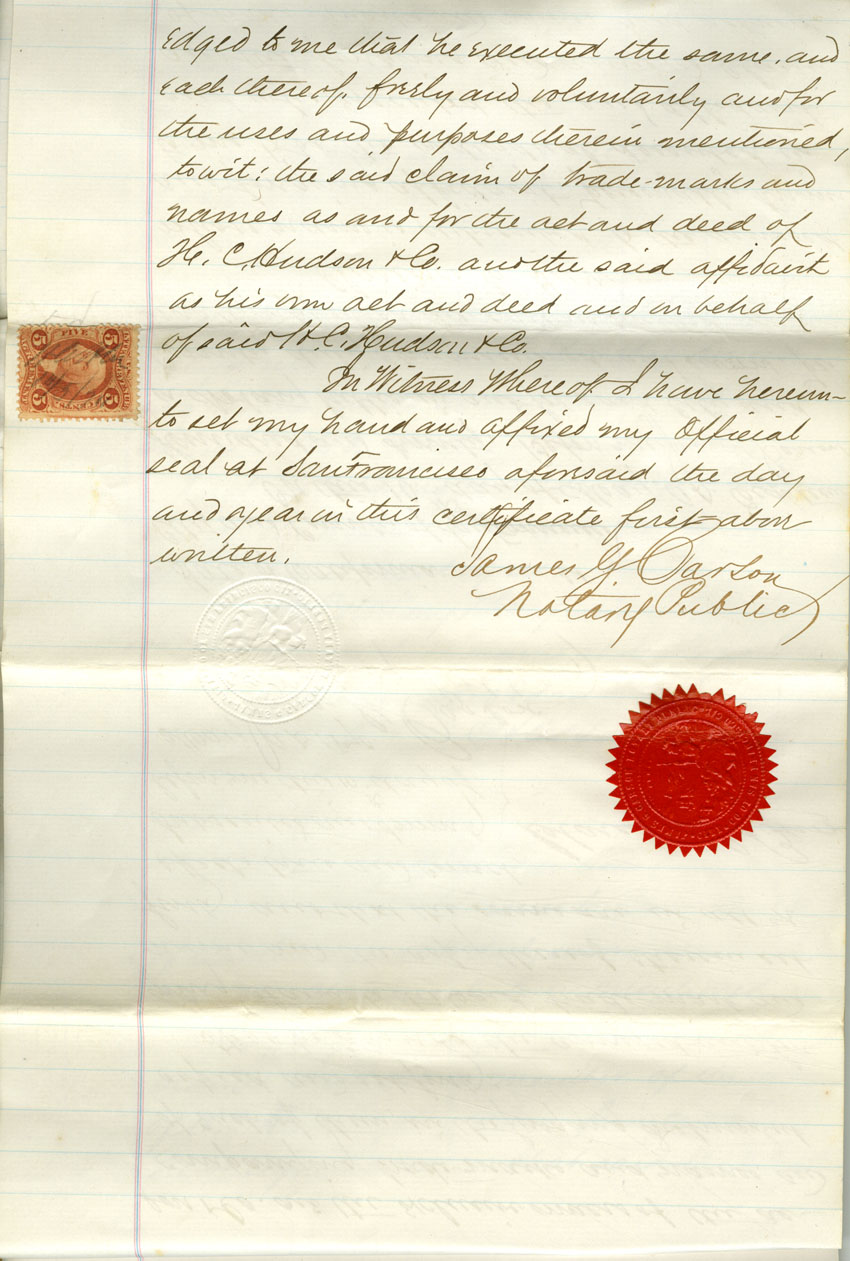 edged to me that he executed the same, and
each thereof, freely and voluntarily and for
the uses and purposes therein mentioned,
to wit: the said claim of trade-marks and
names as and for the act and deed of
H. C. Hudson & Co. and the said affidavit
as his own act and deed and on behalf
of said H. C. Hudson & Co.
In Witness Whereof I have hereun-
to set my hand and affixed my Official
seal at San Francisco aforesaid the day
and year in this certificate first above
written.
James G. Carson
Notary Public
FIVE
5 5
5 CENTS 5